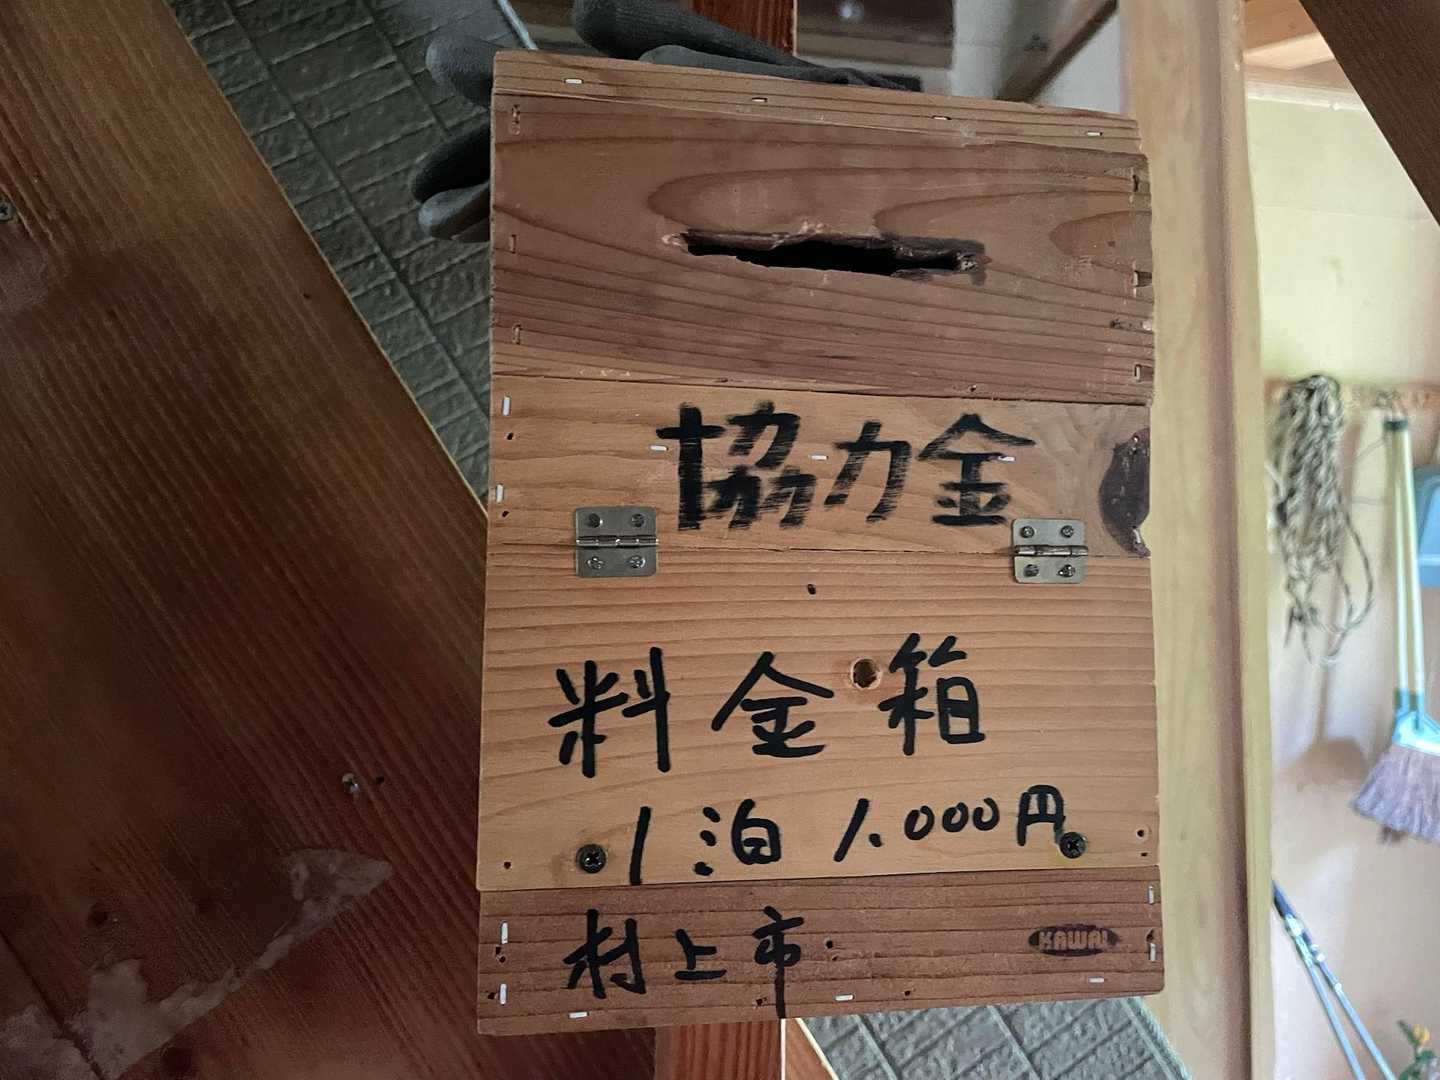 協力金
料金箱
1泊 1.000円
村上市
KAWAI